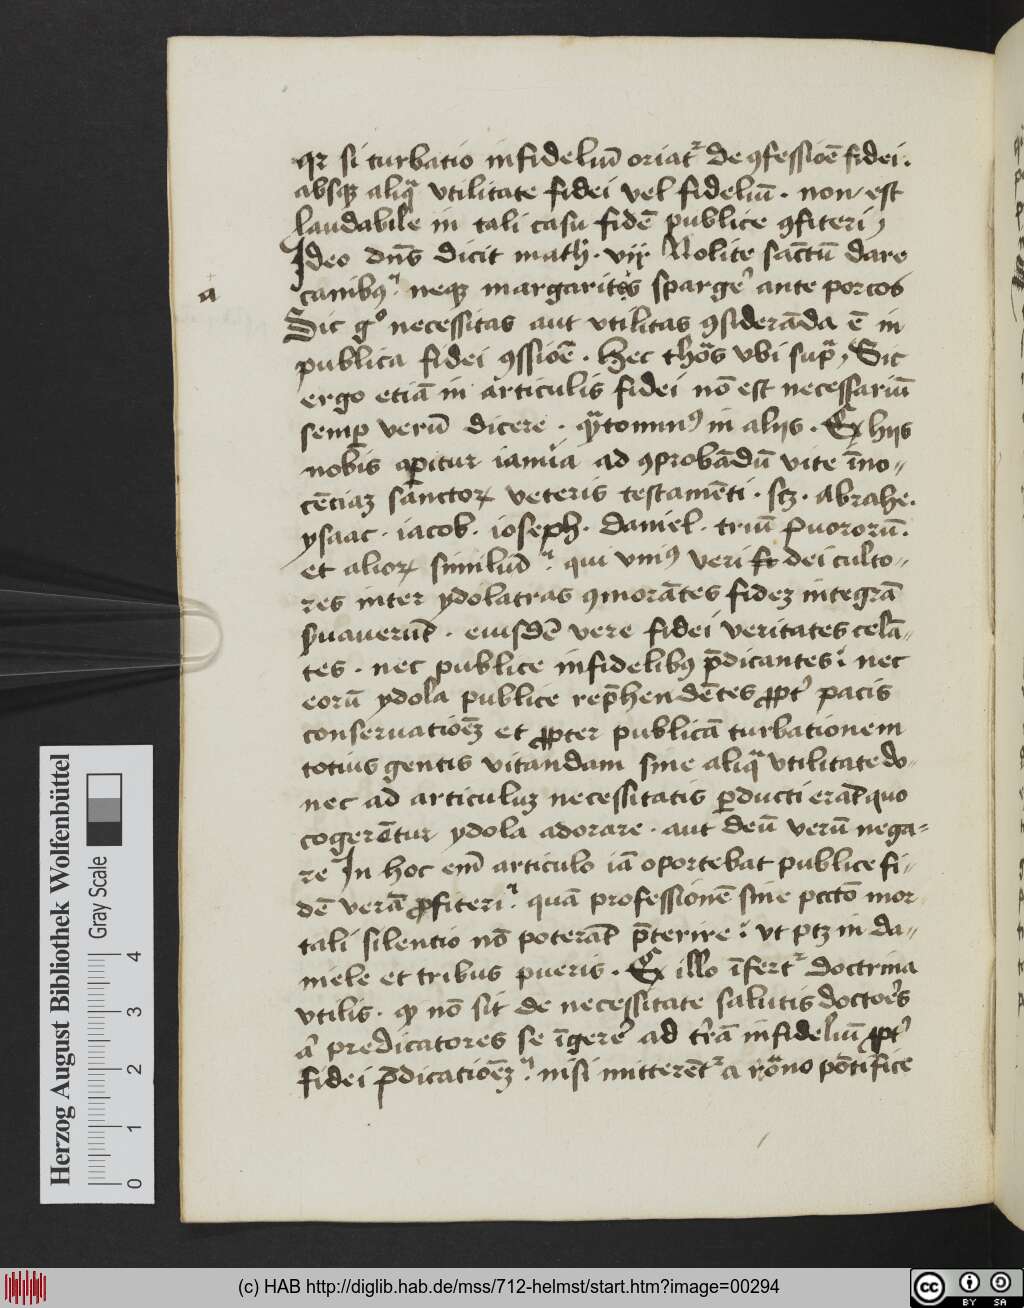 qꝛ si turbatio infideliū oriatᷣ de ꝯfessiōe fidei.
absqꝫ aliqᷓ vtilitate fidei vel fideliū. non est
laudabile in tali casu fidē publice ꝯfiteri
Ideo dn̄s dicit math. vij Nolite sāctū dare
a
canibꝰ. neqꝫ margaritas spargeᷣ ante porcos
Sic gͦ necessitas aut vtilitas ꝯsiderāda ē in
publica fidei ꝯfssiōe. Hec thoᷓs vbi supᷓ, Sic
ergo etiā in articulis fidei nō est necessariū
semꝑ verū dicere. qᷓtominꝰ in alijs. Ex hijs
nobis aꝑitur ianua ad ꝯprobādū vite īno-
cēciaꝫ sanctoꝝ veteris testamēti. scꝫ. Abrahe.
ysaac. iacob. ioseph. daniel. triū puororū.
et alioꝝ similiū. qui vniꝰ veri dei culto-
res inter ydolatras ꝯmorātes fideꝫ integrā
s̄uauerūt. eiusdē vere fidei veritates celā-
tes. nec publice infidelibꝰ p̄dicantes. nec
eorū ydola publice rep̄hendētes ꝓptᷣ pacis
conseruatiōeꝫ et ꝓpter publicā turbationem
totius gentis vitandam sine aliqᷓ vtilitate do-
nec ad articulūꝫ necessitatis ꝑducti erāt quo
cogerētur ydola adorare. aut deū verū nega-
re In hoc em̄ articulo iā oportebat publice fi-
dē verā ꝓfiteri. quā professionē sine pctō mor
tali silentio nō poterāt p̄terire. vt ptꝫ in da-
niele et tribus pueris. Ex illo īfertᷣ doctrina
vtilis. ꝙ nō sit de necessitate salutis doctoᷣes
aᷣ predicatores se īgereᷣ ad trᷣā infideliū ꝓptᷣ
fidei p̄dicatiōeꝫ. nisi mitterētᷣ a roᷓno pōtifice
Herzog August Bibliothek Wolfenbüttel
Gray Scale
0 1 2 3 4
(c) HAB http://diglib.hab.de/mss/712-helmst/start.htm?image=00294
cc BY SA